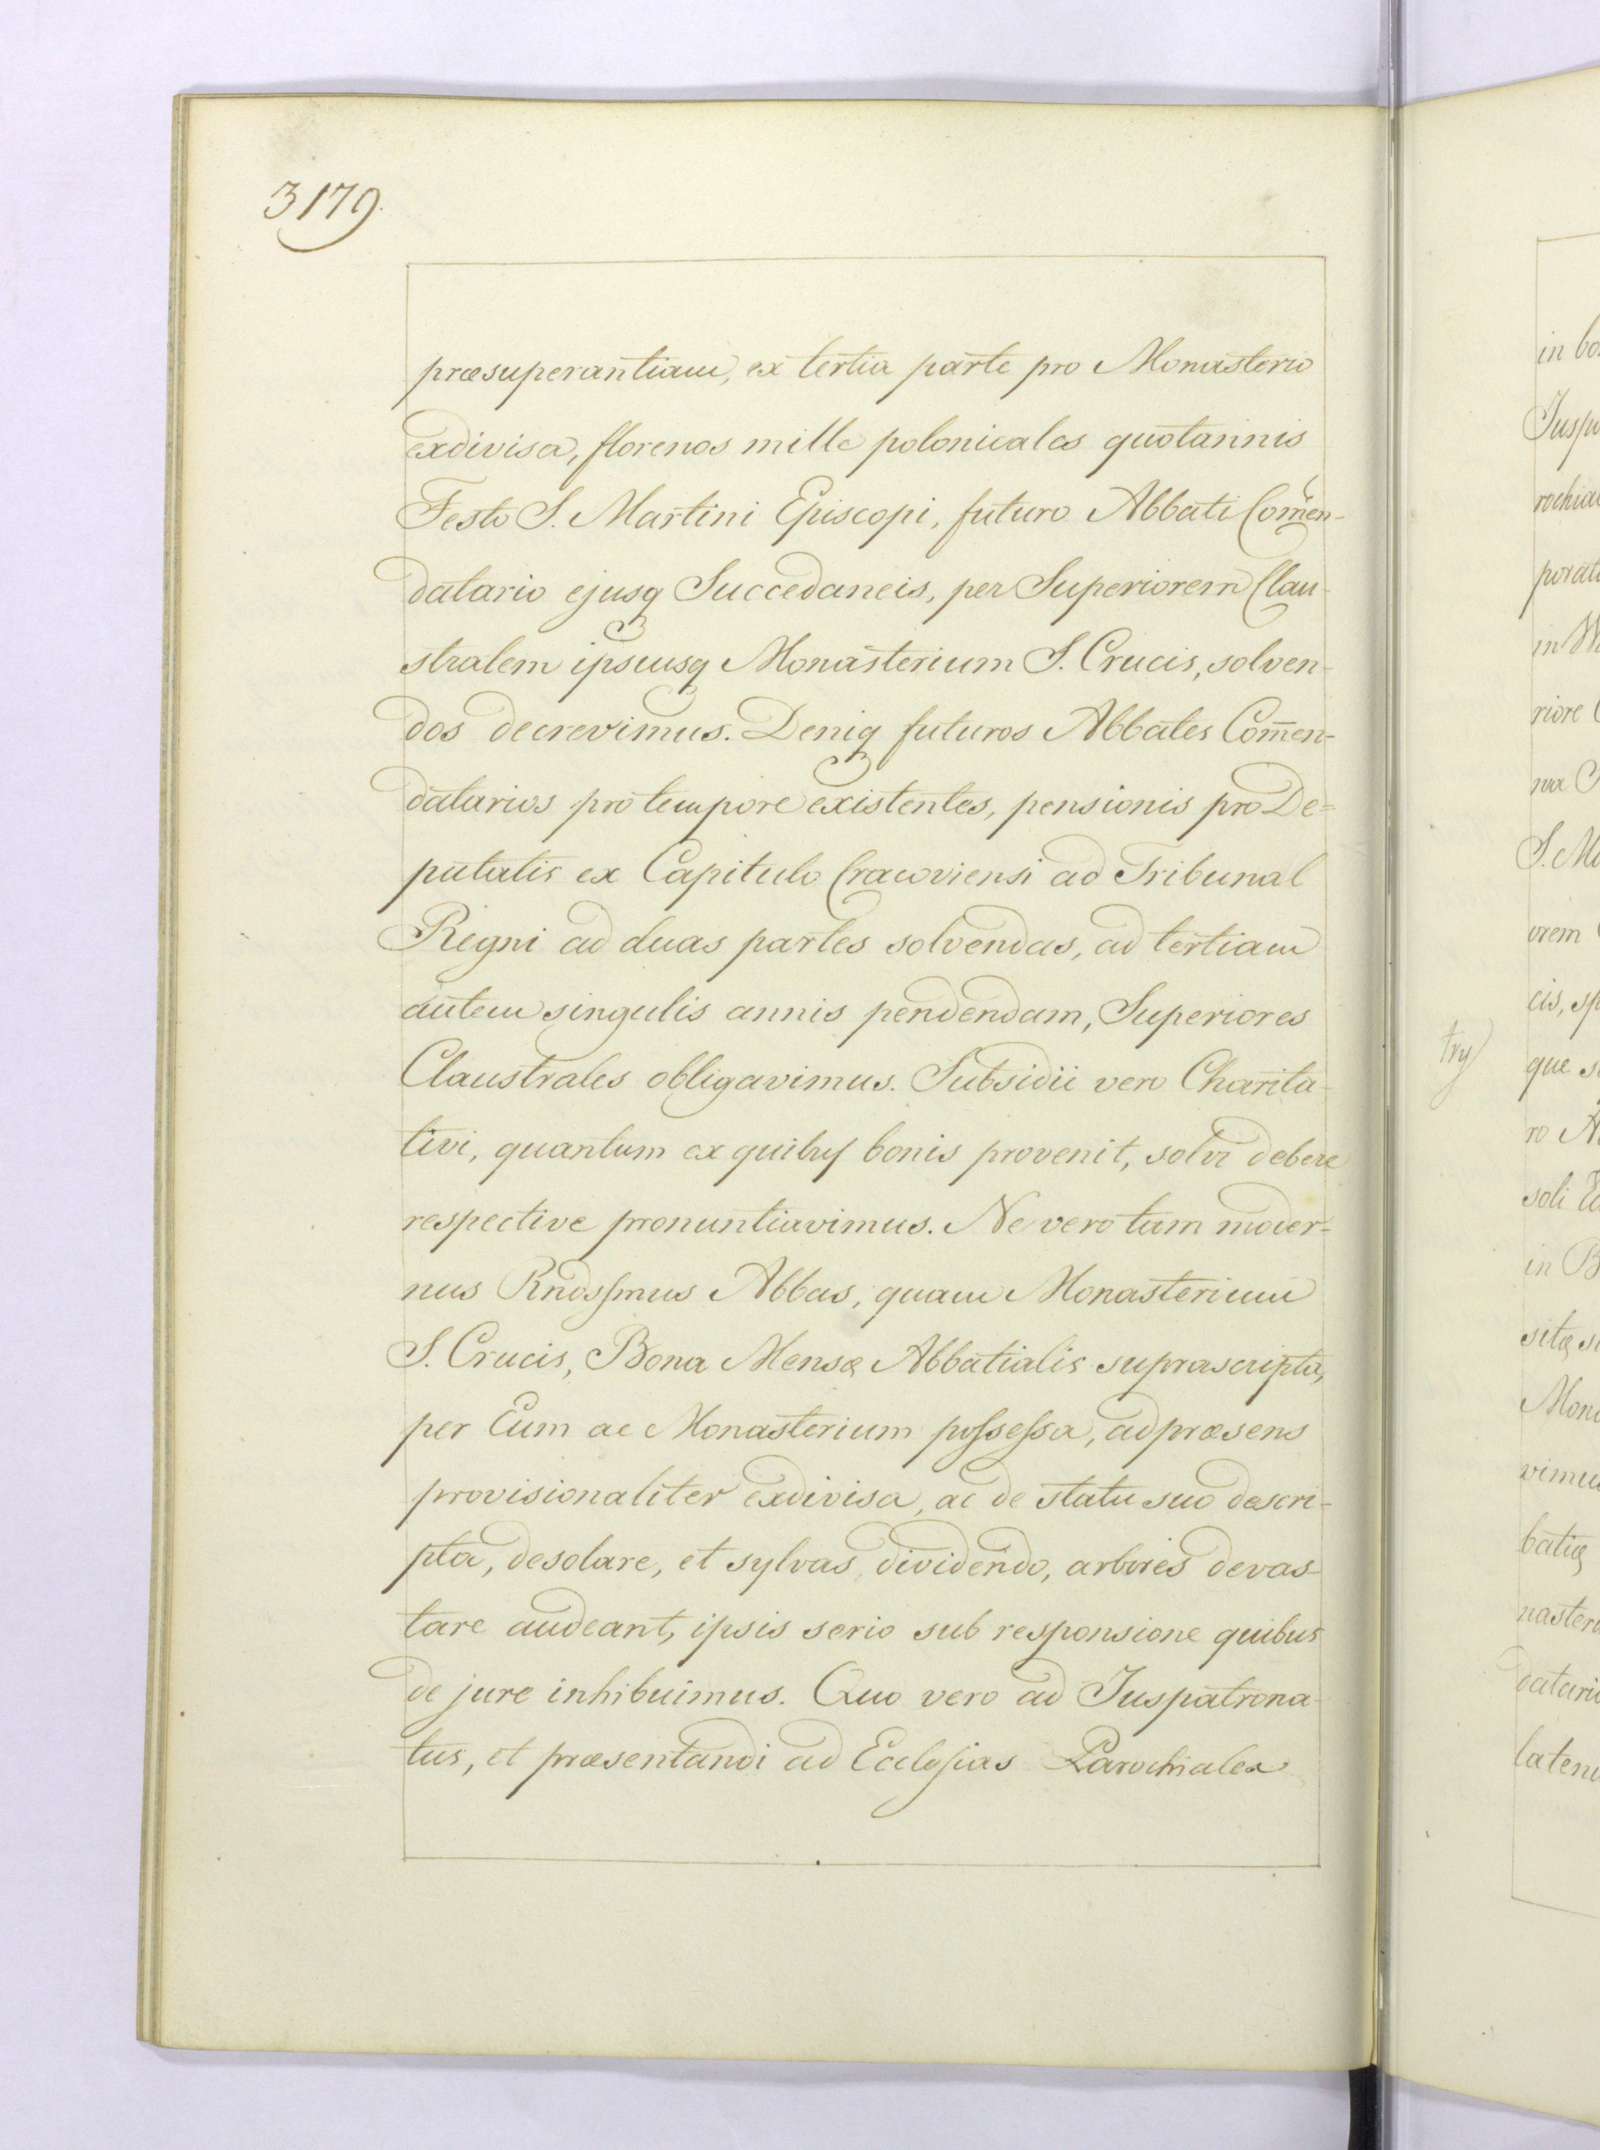 3179.
præsuperantiam, ex tertia parte pro Monasterio
exdivisa, florenos mille polonicales quotannis
Festo S. Martini Episcopi, futuro Abbati Com̄en-
datario ejusq Succedaneis, per Superiorem Clau-
stralem ipsiusq Monasterium S. Crucis, solven-
dos decrevimus. Deniq futuros Abbates Com̄en-
datarios pro tempore existentes, pensionis pro De=
putatis ex Capitulo Cracoviensi ad Tribunal
Regni ad duas partes solvendas, ad tertiam
autem singulis annis pendendam, Superiores
Claustrales obligavimus. Subsidii vero Charita-
tivi, quantum ex quibus bonis provenit, solvi debere
respective pronuntiavimus. Ne vero tam moder-
nus Rndssmus Abbas, quam Monasterium
S. Crucis, Bona Mensæ Abbatialis suprascripta,
per Eum ac Monasterium possessa, ad præsens
provisionaliter exdivisa, ac de statu suo descri-
pta, desolare, et sylvas dividendo, arbores devas-
tare audeant, ipsis serio sub responsione quibus
de jure inhibuimus. Quo vero ad Juspatrona-
tus, et præsentandi ad Ecclesias Parochiales
in
rochia
in
riore
S.
cis,
try
que
ro
soli
in B
vimu